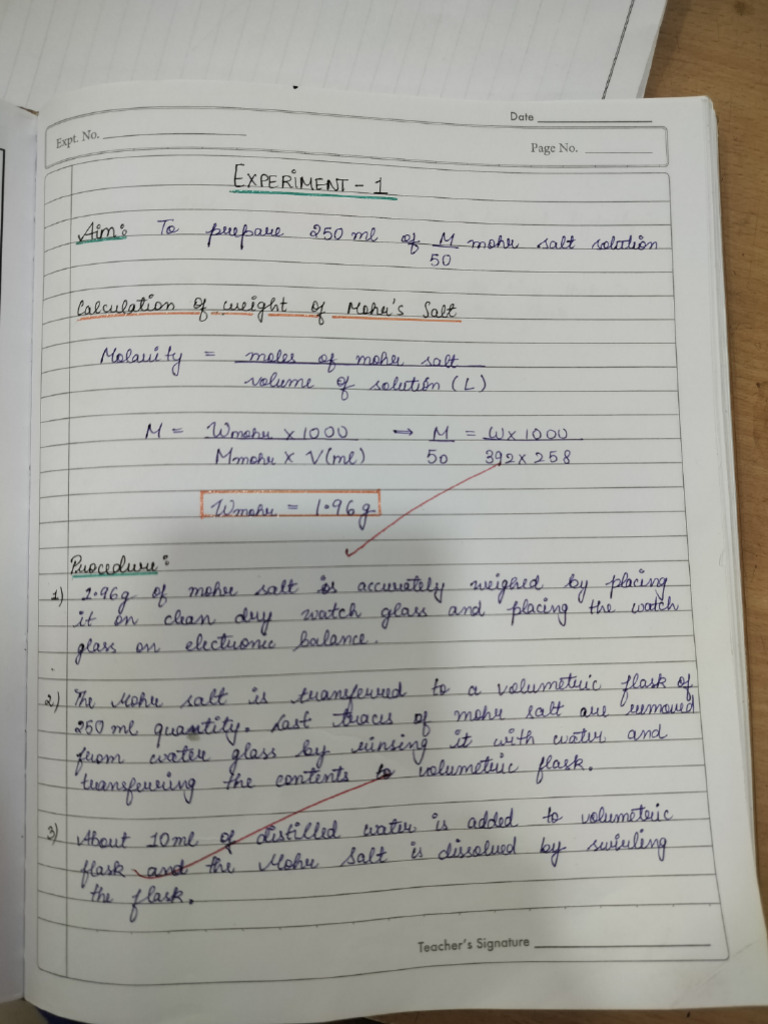 Date
Expt. No.
Page No.
EXPERIMENT - 1
Aim: To prepare 250 ml of M/50 mohr salt solution
Calculation of weight of Mohr's Salt
Molarity = moles of mohr salt
volume of solution (L)
M = Wmohr x 1000 → M = W x 1000
Mmohr x V(ml) 50 392 x 258
Wmohr = 1.96g
Procedure:
1) 1.96g of mohr salt is accurately weighed by placing
it on clean dry watch glass and placing the watch
glass on electronic balance.
2) The Mohr salt is transferred to a volumetric flask of
250 ml quantity. Last traces of mohr salt are removed
from water glass by rinsing it with water and
transferring the contents to volumetric flask.
3) About 10ml of distilled water is added to volumetric
flask and the Mohr Salt is dissolved by swirling
the flask.
Teacher's Signature